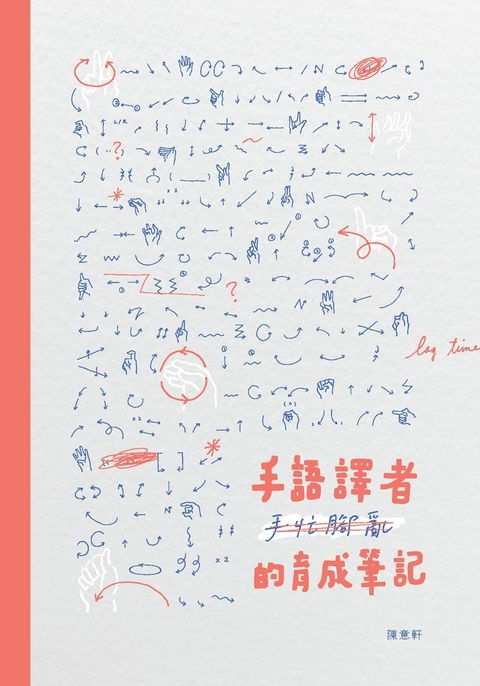 L/R
?
x2
?
lag time
x2
手語譯者
手忙腳亂
的育成筆記
x2
陳意軒